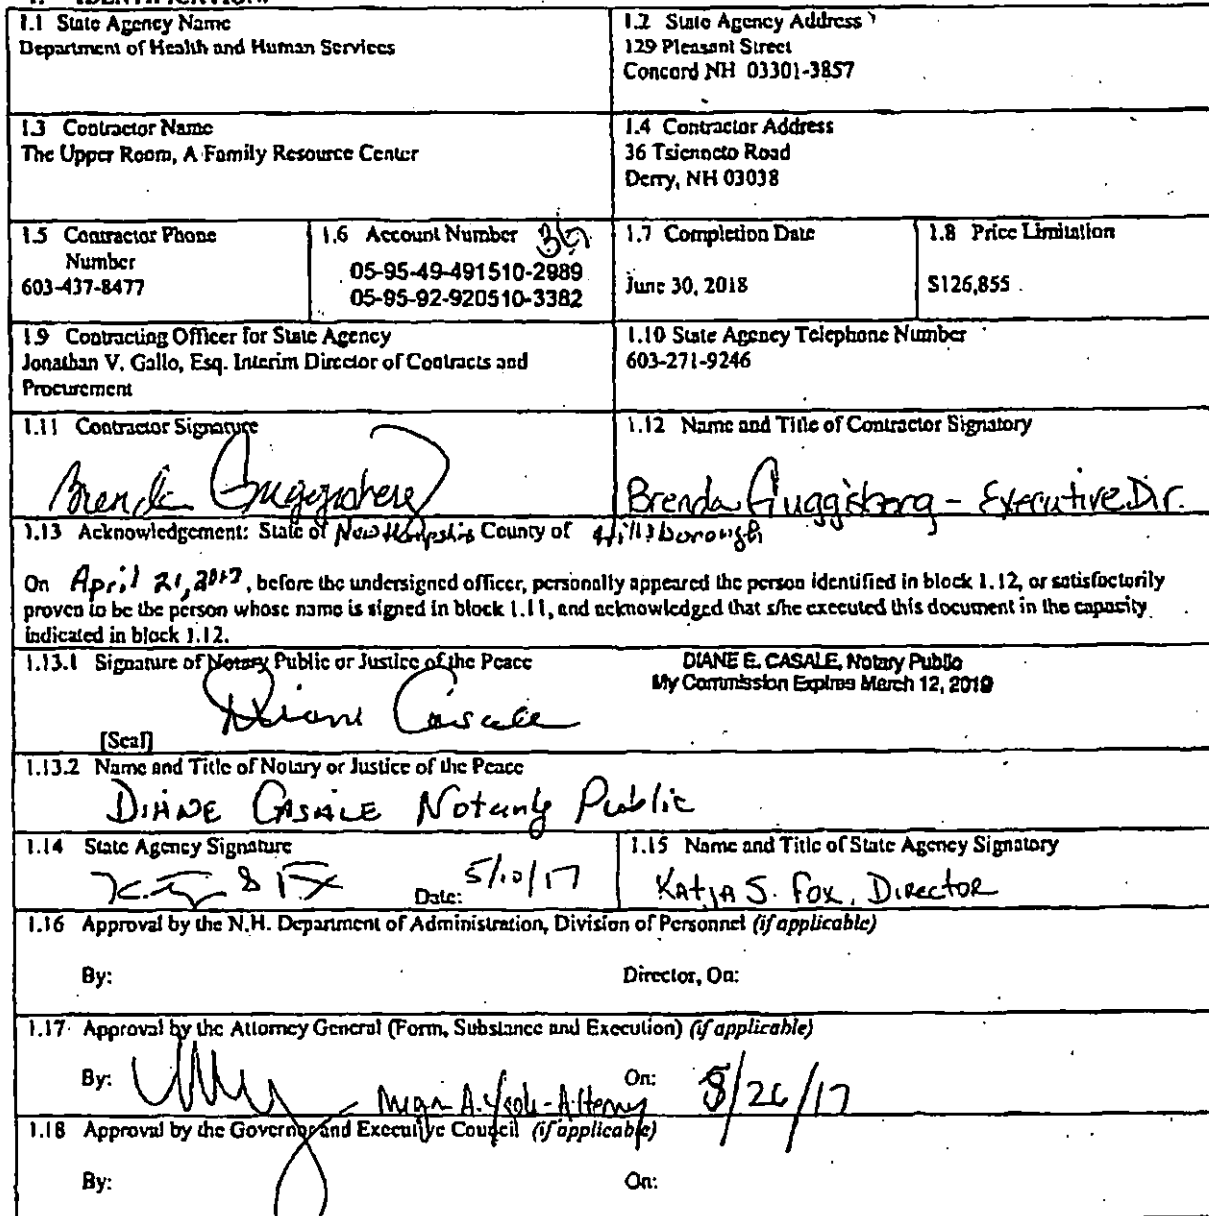 1.1 State Agency Name
Department of Health and Human Services
1.2 State Agency Address
129 Pleasant Street
Concord NH 03301-3857
1.3 Contractor Name
The Upper Room, A Family Resource Center
1.4 Contractor Address
36 Tsienneto Road
Derry, NH 03038
1.5 Contractor Phone
Number
603-437-8477
1.6 Account Number
05-95-49-491510-2989
05-95-92-920510-3382
1.7 Completion Date
June 30, 2018
1.8 Price Limitation
$126,855
1.9 Contracting Officer for State Agency
Jonathan V. Gallo, Esq. Interim Director of Contracts and
Procurement
1.10 State Agency Telephone Number
603-271-9246
1.11 Contractor Signature
Brenda Guggisberg
1.12 Name and Title of Contractor Signatory
Brenda Guggisberg - Executive Dir.
1.13 Acknowledgement: State of New Hampshire County of Hillsborough
On April 21, 2017, before the undersigned officer, personally appeared the person identified in block 1.12, or satisfactorily
proven to be the person whose name is signed in block 1.11, and acknowledged that s/he executed this document in the capacity
indicated in block 1.12.
1.13.1 Signature of Notary Public or Justice of the Peace
DIANE E. CASALE, Notary Public
My Commission Expires March 12, 2019
Diane Casale
[Seal]
1.13.2 Name and Title of Notary or Justice of the Peace
DIANE CASALE Notary Public
1.14 State Agency Signature
Date: 5/10/17
1.15 Name and Title of State Agency Signatory
Katja S. Fox, Director
1.16 Approval by the N.H. Department of Administration, Division of Personnel (if applicable)
By:
Director, On:
1.17 Approval by the Attorney General (Form, Substance and Execution) (if applicable)
By: Megan A. - Attorney
On: 5/26/17
1.18 Approval by the Governor and Executive Council (if applicable)
By:
On: